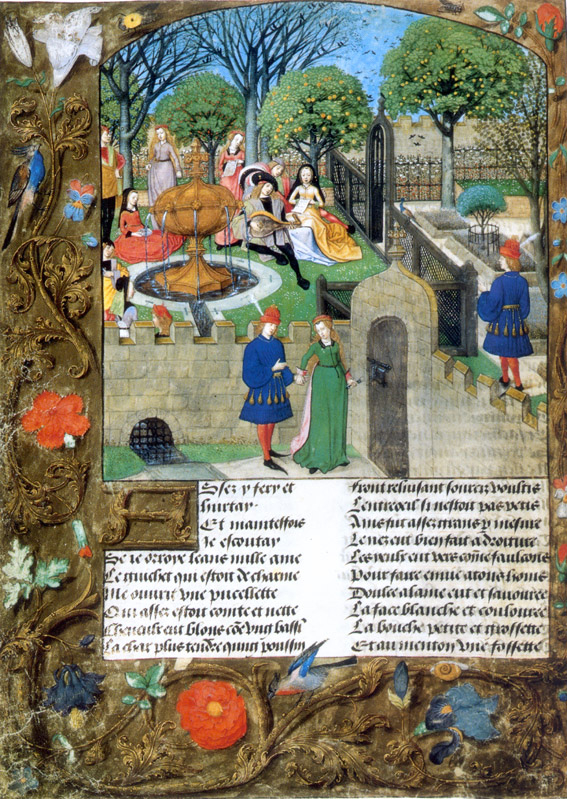 Assez y fery et
hurtay
Et maintesfois
Je escoutay
Se ie orroye leans nulle ame
Le guichet qui estoit de charme
Me ouurit vne pucellette
Qui assez estoit cointe et nette
Cheueulx eut blons cõe vng bassī
La char plus tendre qung poussin
Front reluisant sourcilz voultis
Lentroeil si nestoit pas petis
Ains fut assez grans p mesure
Le nez eut bien fait a droiture
Les yeulx eut vers cõme faulcons
Pour faire enuie a tous homs
Doulce alaine eut et sauouree
La face blanche et coulouree
La bouche petite et grossette
Et au menton vne fossette